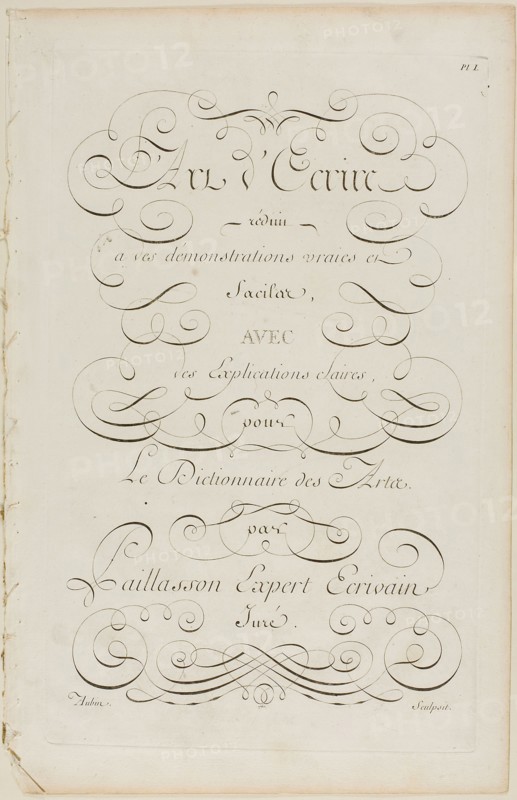 Pl. I.
L'Art d'Ecrire
réduit
a des démonstrations vraies et
faciles,
AVEC
des Explications claires,
pour
Le Dictionnaire des Arts.
par
Paillasson Expert Ecrivain
Juré.
Aubin. Sculpsit.
PHOTO12